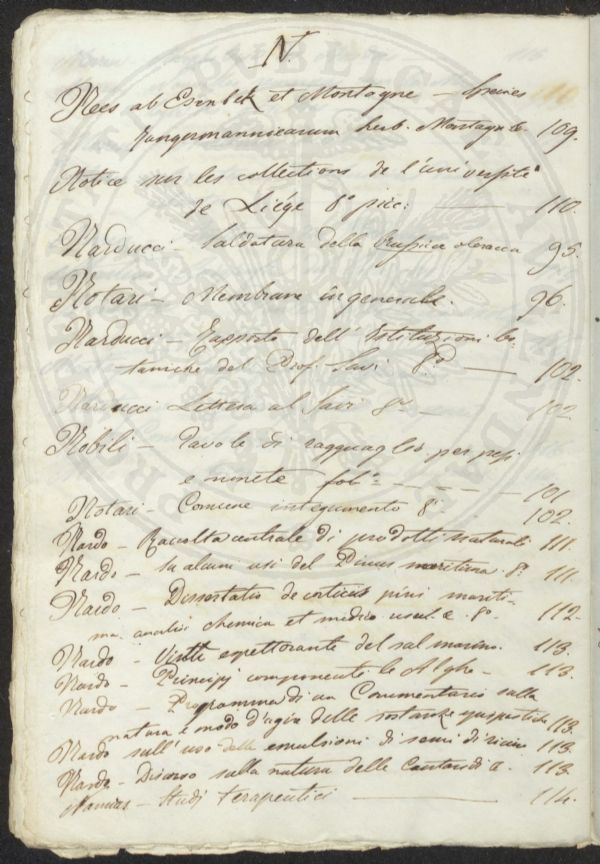 N.
Nees ab Esenbek et Montagne – Species
Jungermannicarum herb. Montagn&. 109.
Notice sur les collections de l'université
de Liége 8° picc: — 110.
Narducci – Saldatura della Brassica oleracea 95.
Notari – Membrane in generale. 96.
Narducci – Rapporto dell' Istituzioni bo-
taniche del Prof. Savi 8.° — 102.
Narducci Lettera al Savi 8° — 102
Nobili – Tavole di ragguaglio per pesi
e monete fol° – – – – – 101.
Notari – Comune integumento 8° 102.
Nardo – Raccolta centrale di prodotti naturali 111.
Nardo – Su alcuni usi del Pinus maritima 8° 111.
Nardo – Dissertatio de corticis pini mariti-
ma analisi chemica et medico usu & 8° 112.
Nardo – Virtù espettorante del sal marino. 113.
Nardo – Principj componente le Alghe – 113.
Nardo – Programma di un Commentario sulla
natura e modo d'agire delle sostanze 113.
Nardo sull' uso delle emulsioni di semi di ricino 113.
Nardo – Discorso sulla natura delle Cantaridi & 113.
– Studi terapeutici — 114.